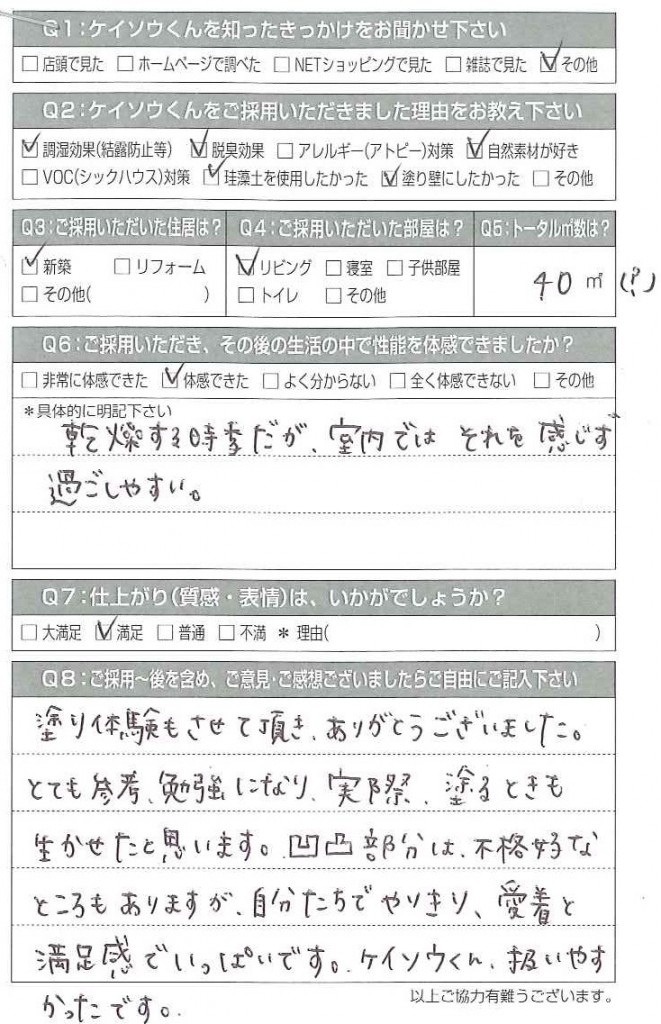 Q1:ケイソウくんを知ったきっかけをお聞かせ下さい
□店頭で見た □ホームページで調べた □NETショッピングで見た □雑誌で見た ☑その他
Q2:ケイソウくんをご採用いただきました理由をお教え下さい
☑調湿効果(結露防止等) ☑脱臭効果 □アレルギー(アトピー)対策 ☑自然素材が好き
□VOC(シックハウス)対策 ☑珪藻土を使用したかった ☑塗り壁にしたかった □その他
Q3:ご採用いただいた住居は? Q4:ご採用いただいた部屋は? Q5:トータル㎡数は?
☑新築 □リフォーム ☑リビング □寝室 □子供部屋 40㎡(?)
□その他( ) □トイレ □その他
Q6:ご採用いただき、その後の生活の中で性能を体感できましたか?
□非常に体感できた ☑体感できた □よく分からない □全く体感できない □その他
*具体的に明記下さい
乾燥する時季だが、室内では それを 感じず
過ごしやすい。
Q7:仕上がり(質感・表情)は、いかがでしょうか?
□大満足 ☑満足 □普通 □不満 *理由( )
Q8:ご採用〜後を含め、ご意見・ご感想ございましたらご自由にご記入下さい
塗り体験もさせて頂き、ありがとうございました。
とても参考、勉強になり、実際際、塗るときも
生かせたと思います。凹凸部分は、不格好な
ところもありますが、自分たちでやりきり、愛着と
満足感でいっぱいです。ケイソウくん、扱いやす
かったです。
以上ご協力有難うございます。